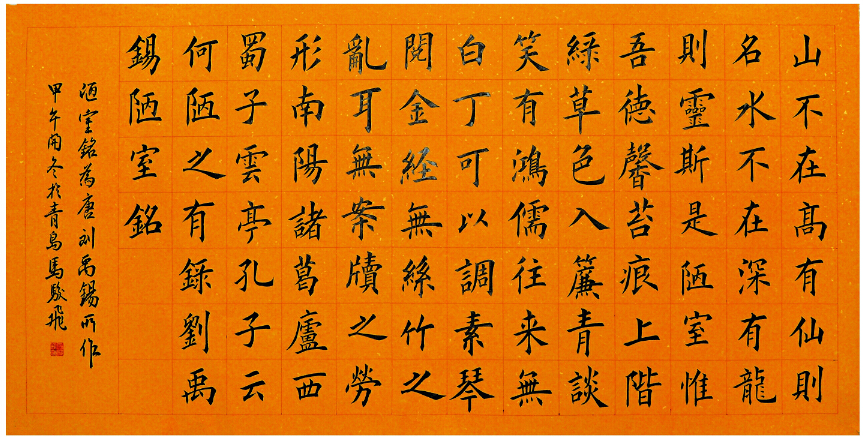 山不在髙有仙則
名水不在深有龍
則靈斯是陋室惟
吾德馨苔痕上階
綠草色入簾青談
笑有鴻儒往来無
白丁可以調素琴
閱金経無絲竹之
亂耳無案牘之勞
形南陽諸葛廬西
蜀子雲亭孔子云
何陋之有錄劉禹
錫陋室銘
陋室銘為唐刘禹錫所作
甲午開冬於青島馬駿飛